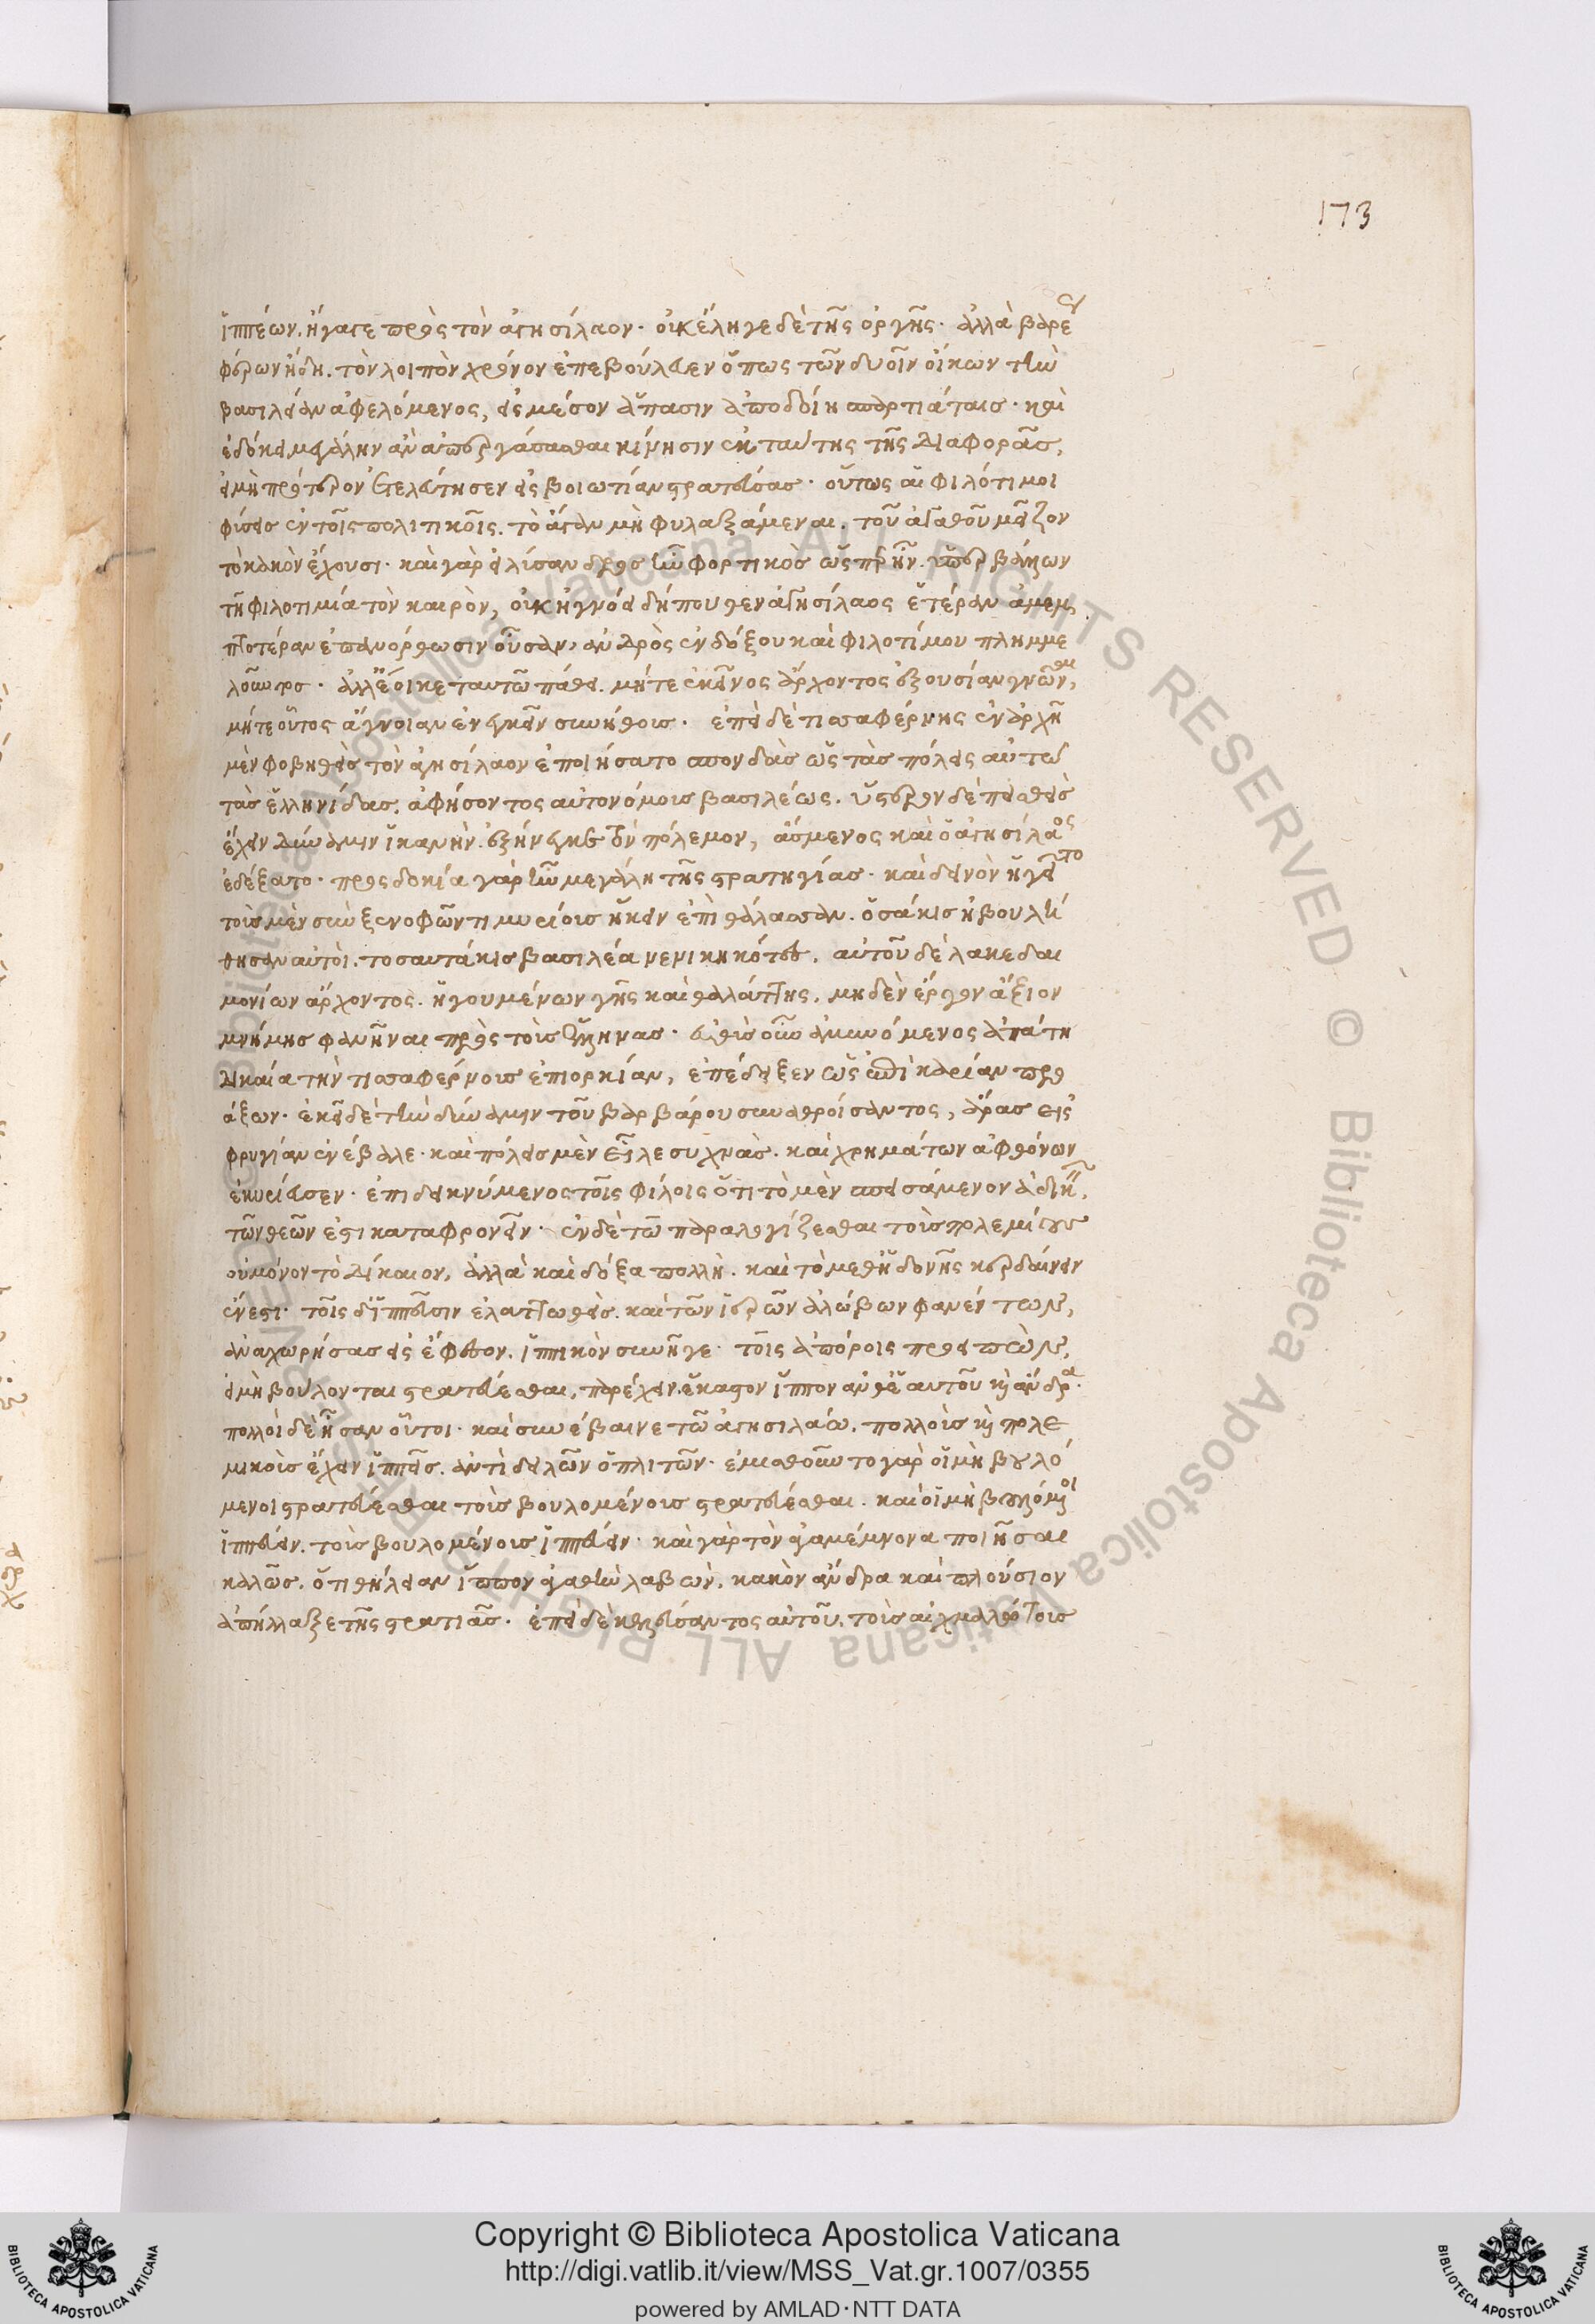 173
ἱππέων. ἤγαγε πρὸς τὸν ἀγησίλαον· οὐκ ἔληγε δὲ τῆς ὀργῆς· ἀλλὰ βαρέως
φέρων ἤδη. τὸν λοιπὸν χρόνον ἐπεβούλευεν ὅπως τῶν δυοῖν οἴκων τὴν
βασιλείαν ἀφελόμενος, εἰς μέσον ἅπασιν ἀποδοίη σπαρτιάταις· καὶ
ἐδόκει μεγάλην ἂν ἀπεργάσασθαι κίνησιν ἐκ ταύτης τῆς διαφορᾶς,
εἰ μὴ πρότερον ἐτελεύτησεν εἰς βοιωτίαν στρατεύσας· οὕτως αἱ φιλότιμοι
φύσεις ἐν τοῖς πολιτικοῖς. τὸ ἄγαν μὴ φυλαξάμεναι. τοῦ ἀγαθοῦ μεῖζον
τὸ κακὸν ἔχουσι· καὶ γὰρ εἰ λύσανδρος ἦν φορτικὸς ὥσπερ ἦν. ὑπερβάλλων
τῇ φιλοτιμία τὸν καιρὸν, οὐκ ἠγνόει δήπουθεν ἀγησίλαος ἑτέραν ἀμεμ
πτοτέραν ἐπανόρθωσιν οὖσαν, ἀνδρὸς ἐνδόξου καὶ φιλοτίμου πλημμε
λοῦντος· ἀλλ' ἔοικε ταυτῶ πάθει. μήτε ἐκεῖνος ἄρχοντος ἐξουσίαν γνῶναι,
μήτε οὗτος ἄγνοιαν ἐνεγκεῖν συνήθους· ἐπεὶ δὲ τισσαφέρνης ἐν ἀρχῇ
μὲν φοβηθεὶς τὸν ἀγησίλαον ἐποιήσατο σπονδὰς ὡς τὰς πόλεις αὐτῶ
τὰς ἑλληνίδας. ἀφήσοντος αὐτονόμους βασιλέως. ὕστερον δὲ πεισθεὶς
ἔχειν δύναμιν ἱκανὴν. ἐξήνεγκε τὸν πόλεμον, ἄσμενος καὶ ὁ ἀγησίλαος
ἐδέξατο· προσδοκία γὰρ ἦν μεγάλη τῆς στρατηγίας· καὶ δεινὸν ἡγεῖτο
τοὺς μὲν σὺν ξενοφῶντι μυρίους ἥκειν ἐπὶ θάλασσαν. ὁσάκις ἠβουλή
θησαν αὐτοὶ. τοσαυτάκις βασιλέα νενικηκότες. αὐτοῦ δὲ λακεδαι
μονίων ἄρχοντος. ἡγουμένων γῆς καὶ θαλάττης. μηδὲν ἔργον ἄξιον
μνήμης φανῆναι πρὸς τοὺς ἕλληνας· εὐθὺς οὖν ἀμυνόμενος ἀπάτη
δικαία τὴν τισσαφέρνους ἐπιορκίαν, ἐπέδειξεν ὡς ἐπὶ καρίαν προ
άξων· ἐκεῖ δὲ τὴν δύναμιν τοῦ βαρβάρου συναθροίσαντος, ἄρας εἰς
φρυγίαν ἐνέβαλε· καὶ πόλεις μὲν εἷλε συχνὰς. καὶ χρημάτων ἀφθόνων
ἐκυρίευσεν· ἐπιδεικνύμενος τοῖς φίλοις ὅτι τὸ μὲν σπεισάμενον ἀδικεῖν,
τῶν θεῶν ἐστι καταφρονεῖν· ἐν δὲ τῶ παραλογίζεσθαι τοὺς πολεμίους
οὐ μόνον τὸ δίκαιον, ἀλλὰ καὶ δόξα πολλὴ. καὶ τὸ μεθ' ἡδονῆς κερδαίνειν
ἔνεστι· τοῖς δ' ἱππεῦσιν ἐλαττωθεὶς. καὶ τῶν ἱερῶν ἀλόβων φανέντων,
ἀναχωρήσας εἰς ἔφεσον. ἱππικὸν συνῆγε· τοῖς εὐπόροις προειπὼν,
εἰ μὴ βούλονται στρατεύεσθαι, παρέχειν ἕκαστον ἵππον ἀνθ' ἑαυτοῦ καὶ ἄνδρα·
πολλοὶ δὲ ἦσαν οὗτοι· καὶ συνέβαινε τῶ ἀγησιλάω. πολλοὺς καὶ πολε
μικοὺς ἔχειν ἱππεῖς. ἀντὶ δειλῶν ὁπλιτῶν· ἐμισθοῦντο γὰρ οἱ μὴ βουλό
μενοι στρατεύεσθαι τοὺς βουλομένους στρατεύεσθαι. καὶ οἱ μὴ βουλόμενοι
ἱππεύειν. τοὺς βουλομένους ἱππεύειν· καὶ γὰρ τὸν ἀγαμέμνονα ποιῆσαι
καλῶς. ὅτι θήλειαν ἵππον ἀγαθὴν λαβὼν. κακὸν ἄνδρα καὶ πλούσιον
ἀπήλλαξε τῆς στρατιᾶς· ἐπεὶ δὲ κελεύσαντος αὐτοῦ. τοὺς αἰχμαλώτους
Copyright © Biblioteca Apostolica Vaticana
http://digi.vatlib.it/view/MSS_Vat.gr.1007/0355
powered by AMLAD·NTT DATA